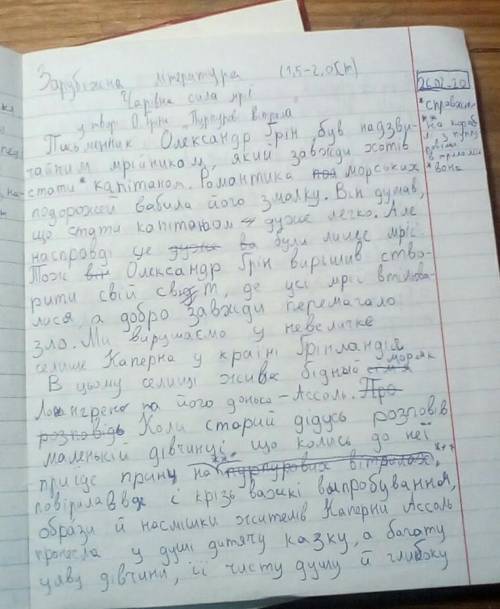 Зарубіжна література (1,5-2,0 ст)
Чарівна сила мрії
у творі О. Грін "Пурпурові вітрила"
Письменник Олександр Грін був надзви-
чайним мрійником, який завжди хотів
стати * капітаном. Романтика морських
подорожей вабила його змалку. Він думав,
що стати капітаном - дуже легко. Але
насправді це були лише мрії.
Тож Олександр Грін вирішив ство-
рити свій світ, де усі мрії втілюва-
лися, а добро завжди перемагало
зло. Ми вирушаємо у невеличке
селище Каперна у країні Грінландія
В цьому селищі живе бідний моряк
Лонгрен та його донька - Ассоль. Про
розповідь Коли старий дідусь розповів
маленькій дівчинці, що колись до неї
приїде принц на пурпурових вітрилах,
повірила в і крізь важкі випробування,
образи й насмішки жителів Каперни Ассоль
пронесла у душі дитячу казку, а багату
уяву дівчини, її чисту душу й глибоку
*справжнім
** на кораб
лі з пурпу
ровими
вітрилами
* вона